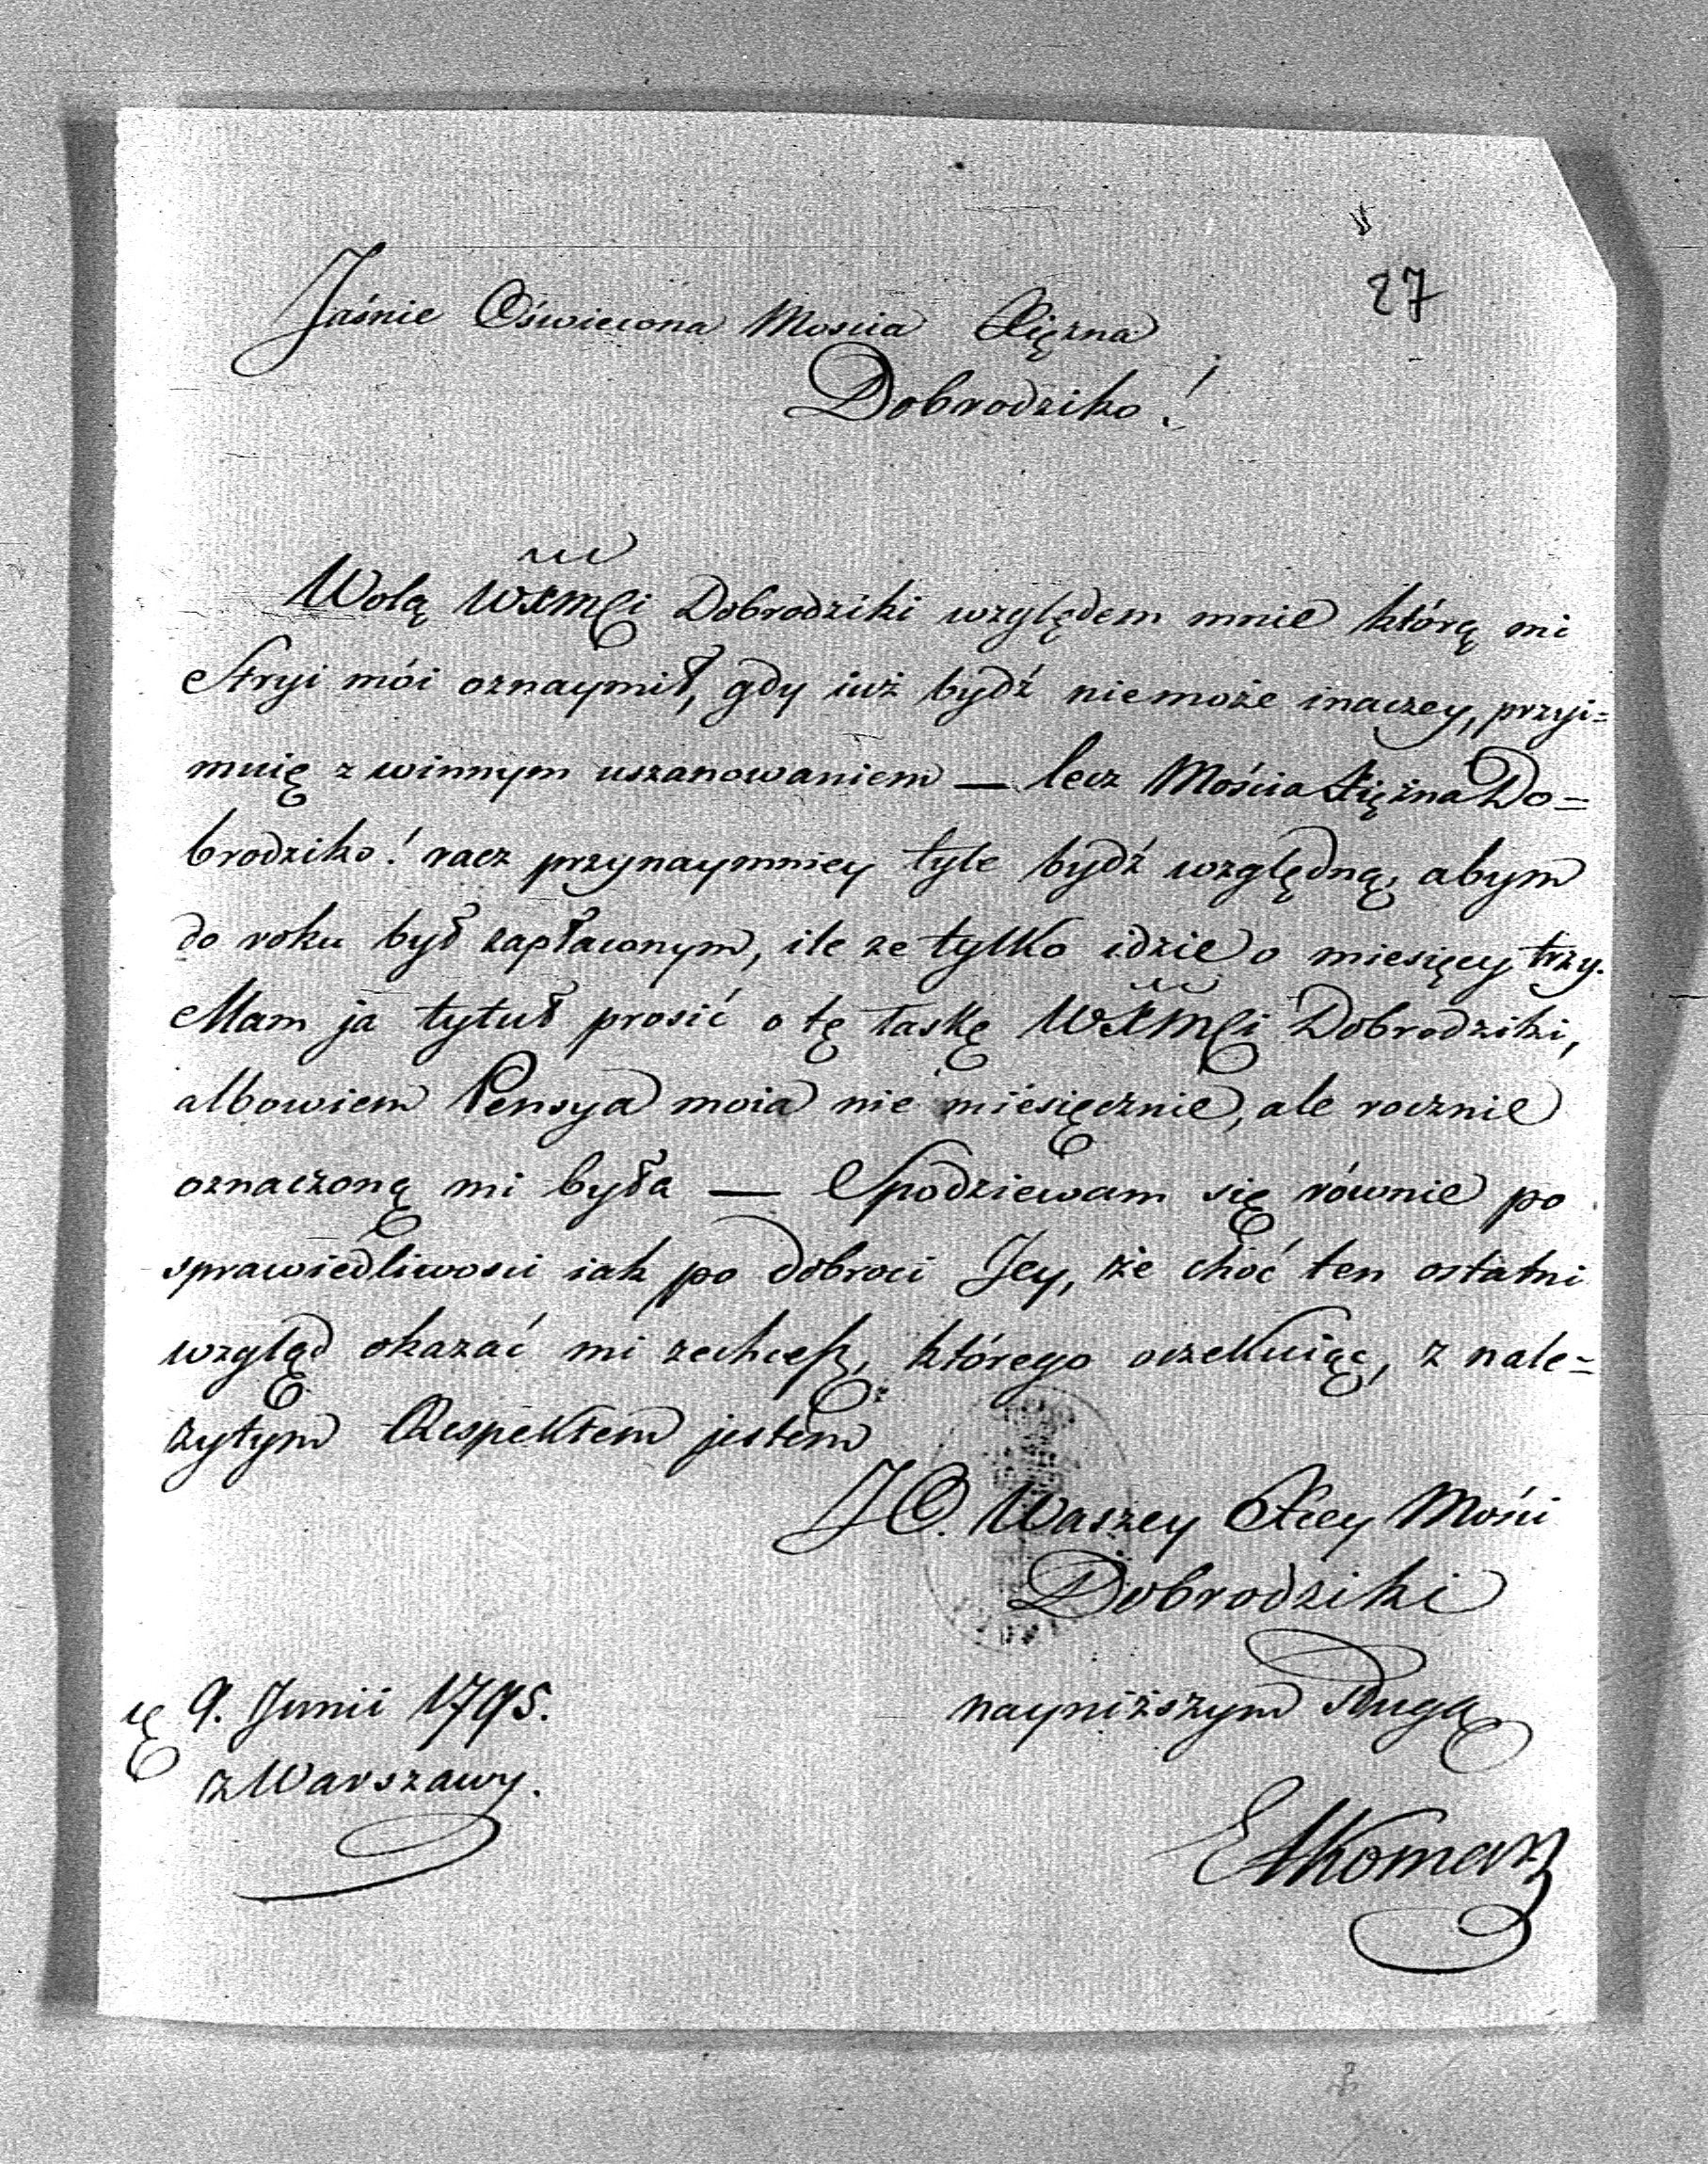 27
Jaśnie Oświecona Mościa Xiężna
Dobrodziko!
Wolą WXMCi Dobrodziki względem mnie którą mi
Stryi mói oznaymił, gdy iuż bydź niemoże inaczey, przyi=
muię z winnym uszanowaniem — lecz Mościa Xiężna Do=
brodziko! racz przynaymniey tyle bydź względną, abym
do roku był zapłaconym, ile ze tylko idzie o miesięcy trzy.
Mam ja tytuł prosić o tę łaskę WXMCi Dobrodziki,
albowiem Pensya moia nie miesięcznie, ale rocznie
oznaczoną mi była — Spodziewam się równie po
sprawiedliwosci iak po dobroci Jey, że choć ten ostatni
wzgląd okazać mi zechcesz, którego oczekuiąc, z nale=
zytym Respektem jestem
JO. Waszey Xcey Mości
Dobrodziki
nayniższym sługą
9. Junii 1795.
z Warszawy.